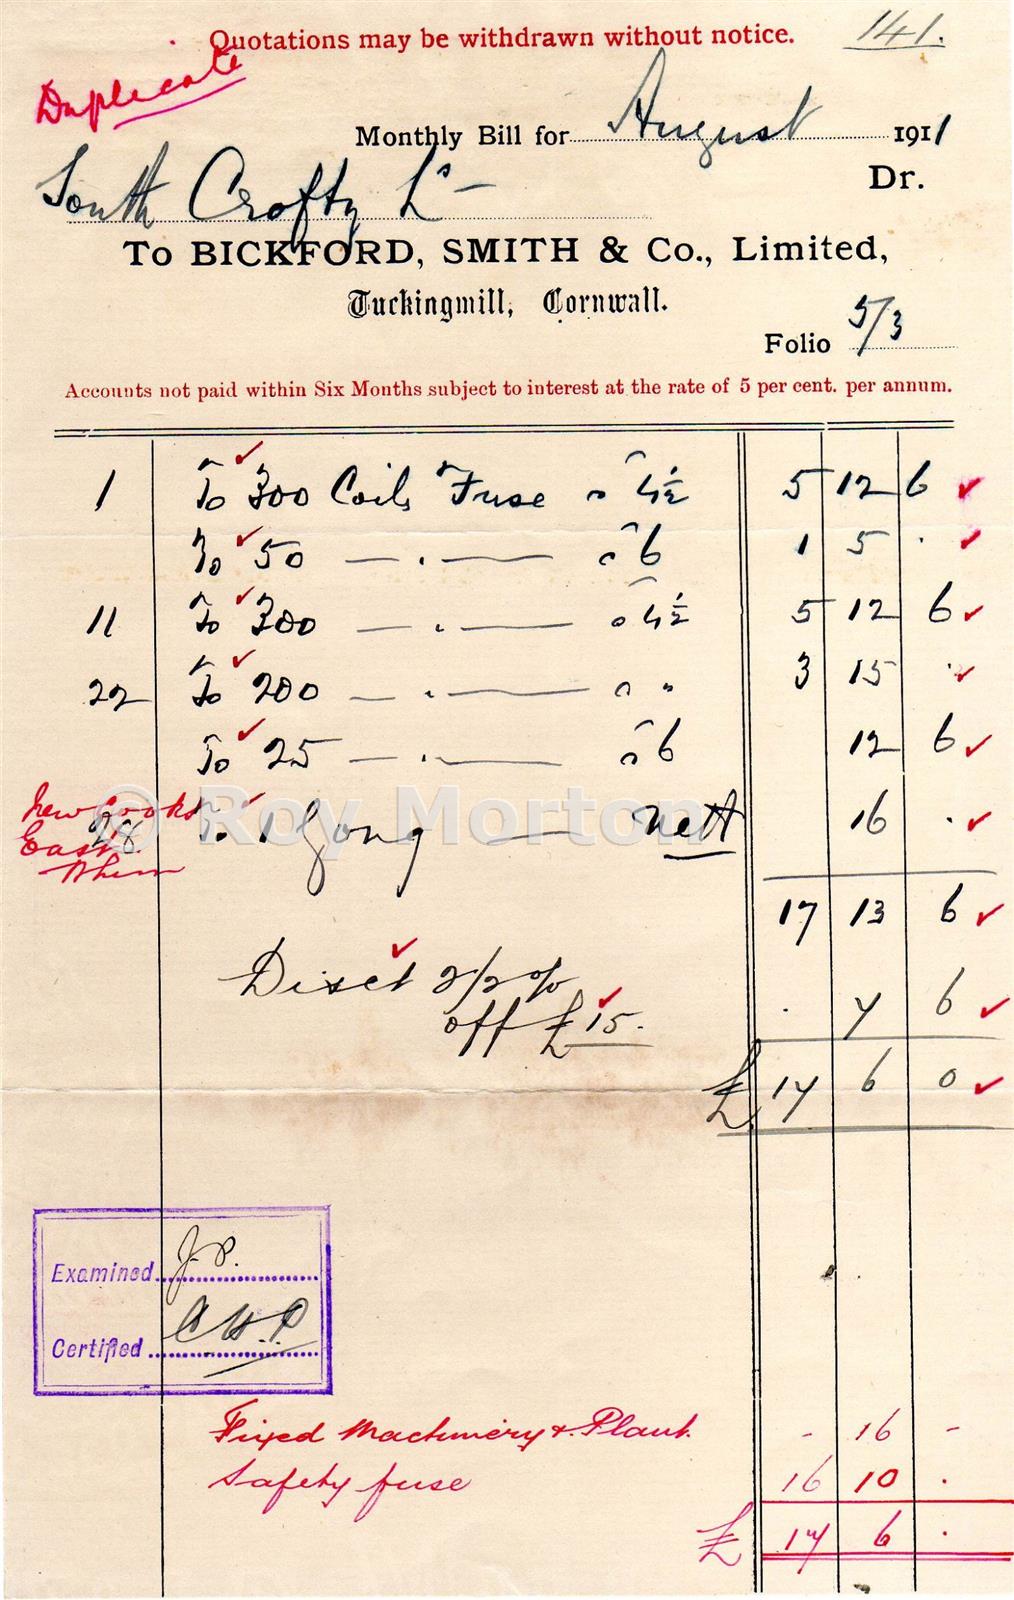 141.
Quotations may be withdrawn without notice.
Duplicate
Monthly Bill for August 1911
South Crofty Ls –
Dr.
To BICKFORD, SMITH & Co., Limited,
Tuckingmill, Cornwall.
Folio 5/3
Accounts not paid within Six Months subject to interest at the rate of 5 per cent. per annum.
1 To 300 Coils Fuse @ 4½ 5 12 6
To 50 — " — @ 6 1 5 .
11 To 300 — " — @ 4½ 5 12 6
22 To 200 — " — @ " 3 15 .
To 25 — " — @ 6 12 6
New Cooks
28 To 1 Gong — Nett 16 .
East
17 13 6
Disct 2½ %
off £15. . 7 6
£ 17 6 0
Examined J.P.
Certified
Fixed Machinery & Plant. - 16 -
Safety fuse 16 10 .
£ 17 6 .
© Roy Morton